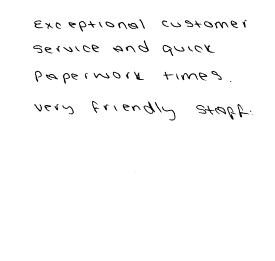 Exceptional customer
service and quick
paperwork times.
very friendly staff.